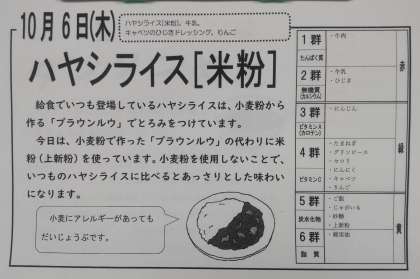 10月 6日(木)
ハヤシライス[米粉]、牛乳、
キャベツのひじきドレッシング、りんご
ハヤシライス[米粉]
給食でいつも登場しているハヤシライスは、小麦粉から
作る「ブラウンルウ」でとろみをつけています。
今日は、小麦粉で作った「ブラウンルウ」の代わりに米
粉(上新粉)を使っています。小麦粉を使用しないことで、
いつものハヤシライスに比べるとあっさりとした味わい
になります。
小麦にアレルギーがあっても
だいじょうぶです。
1群
たんぱく質
・牛肉
2群
無機質
(カルシウム)
・牛乳
・ひじき
赤
3群
ビタミンA
(カロテン)
・にんじん
4群
ビタミンC
・たまねぎ
・グリンピース
・セロリ
・にんにく
・キャベツ
・りんご
緑
5群
炭水化物
・ご飯
・じゃがいも
・砂糖
・上新粉
6群
脂質
黄